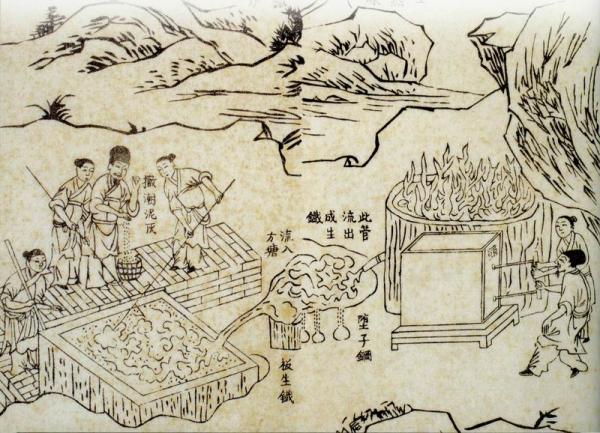 此管
流出
成生
鐵
墮子鋼
流入
方塘
板生鐵
撒潮泥灰